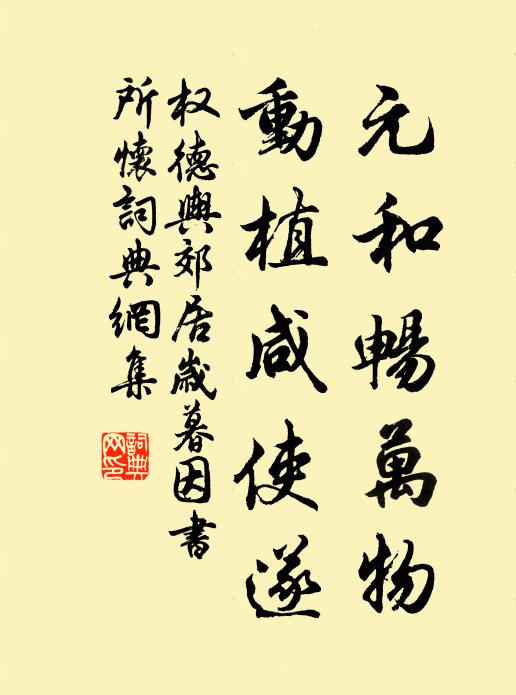 元和暢萬物
動植咸使遂
权德輿郊居歲暮因書
所懷詞典網集
詞典
网印